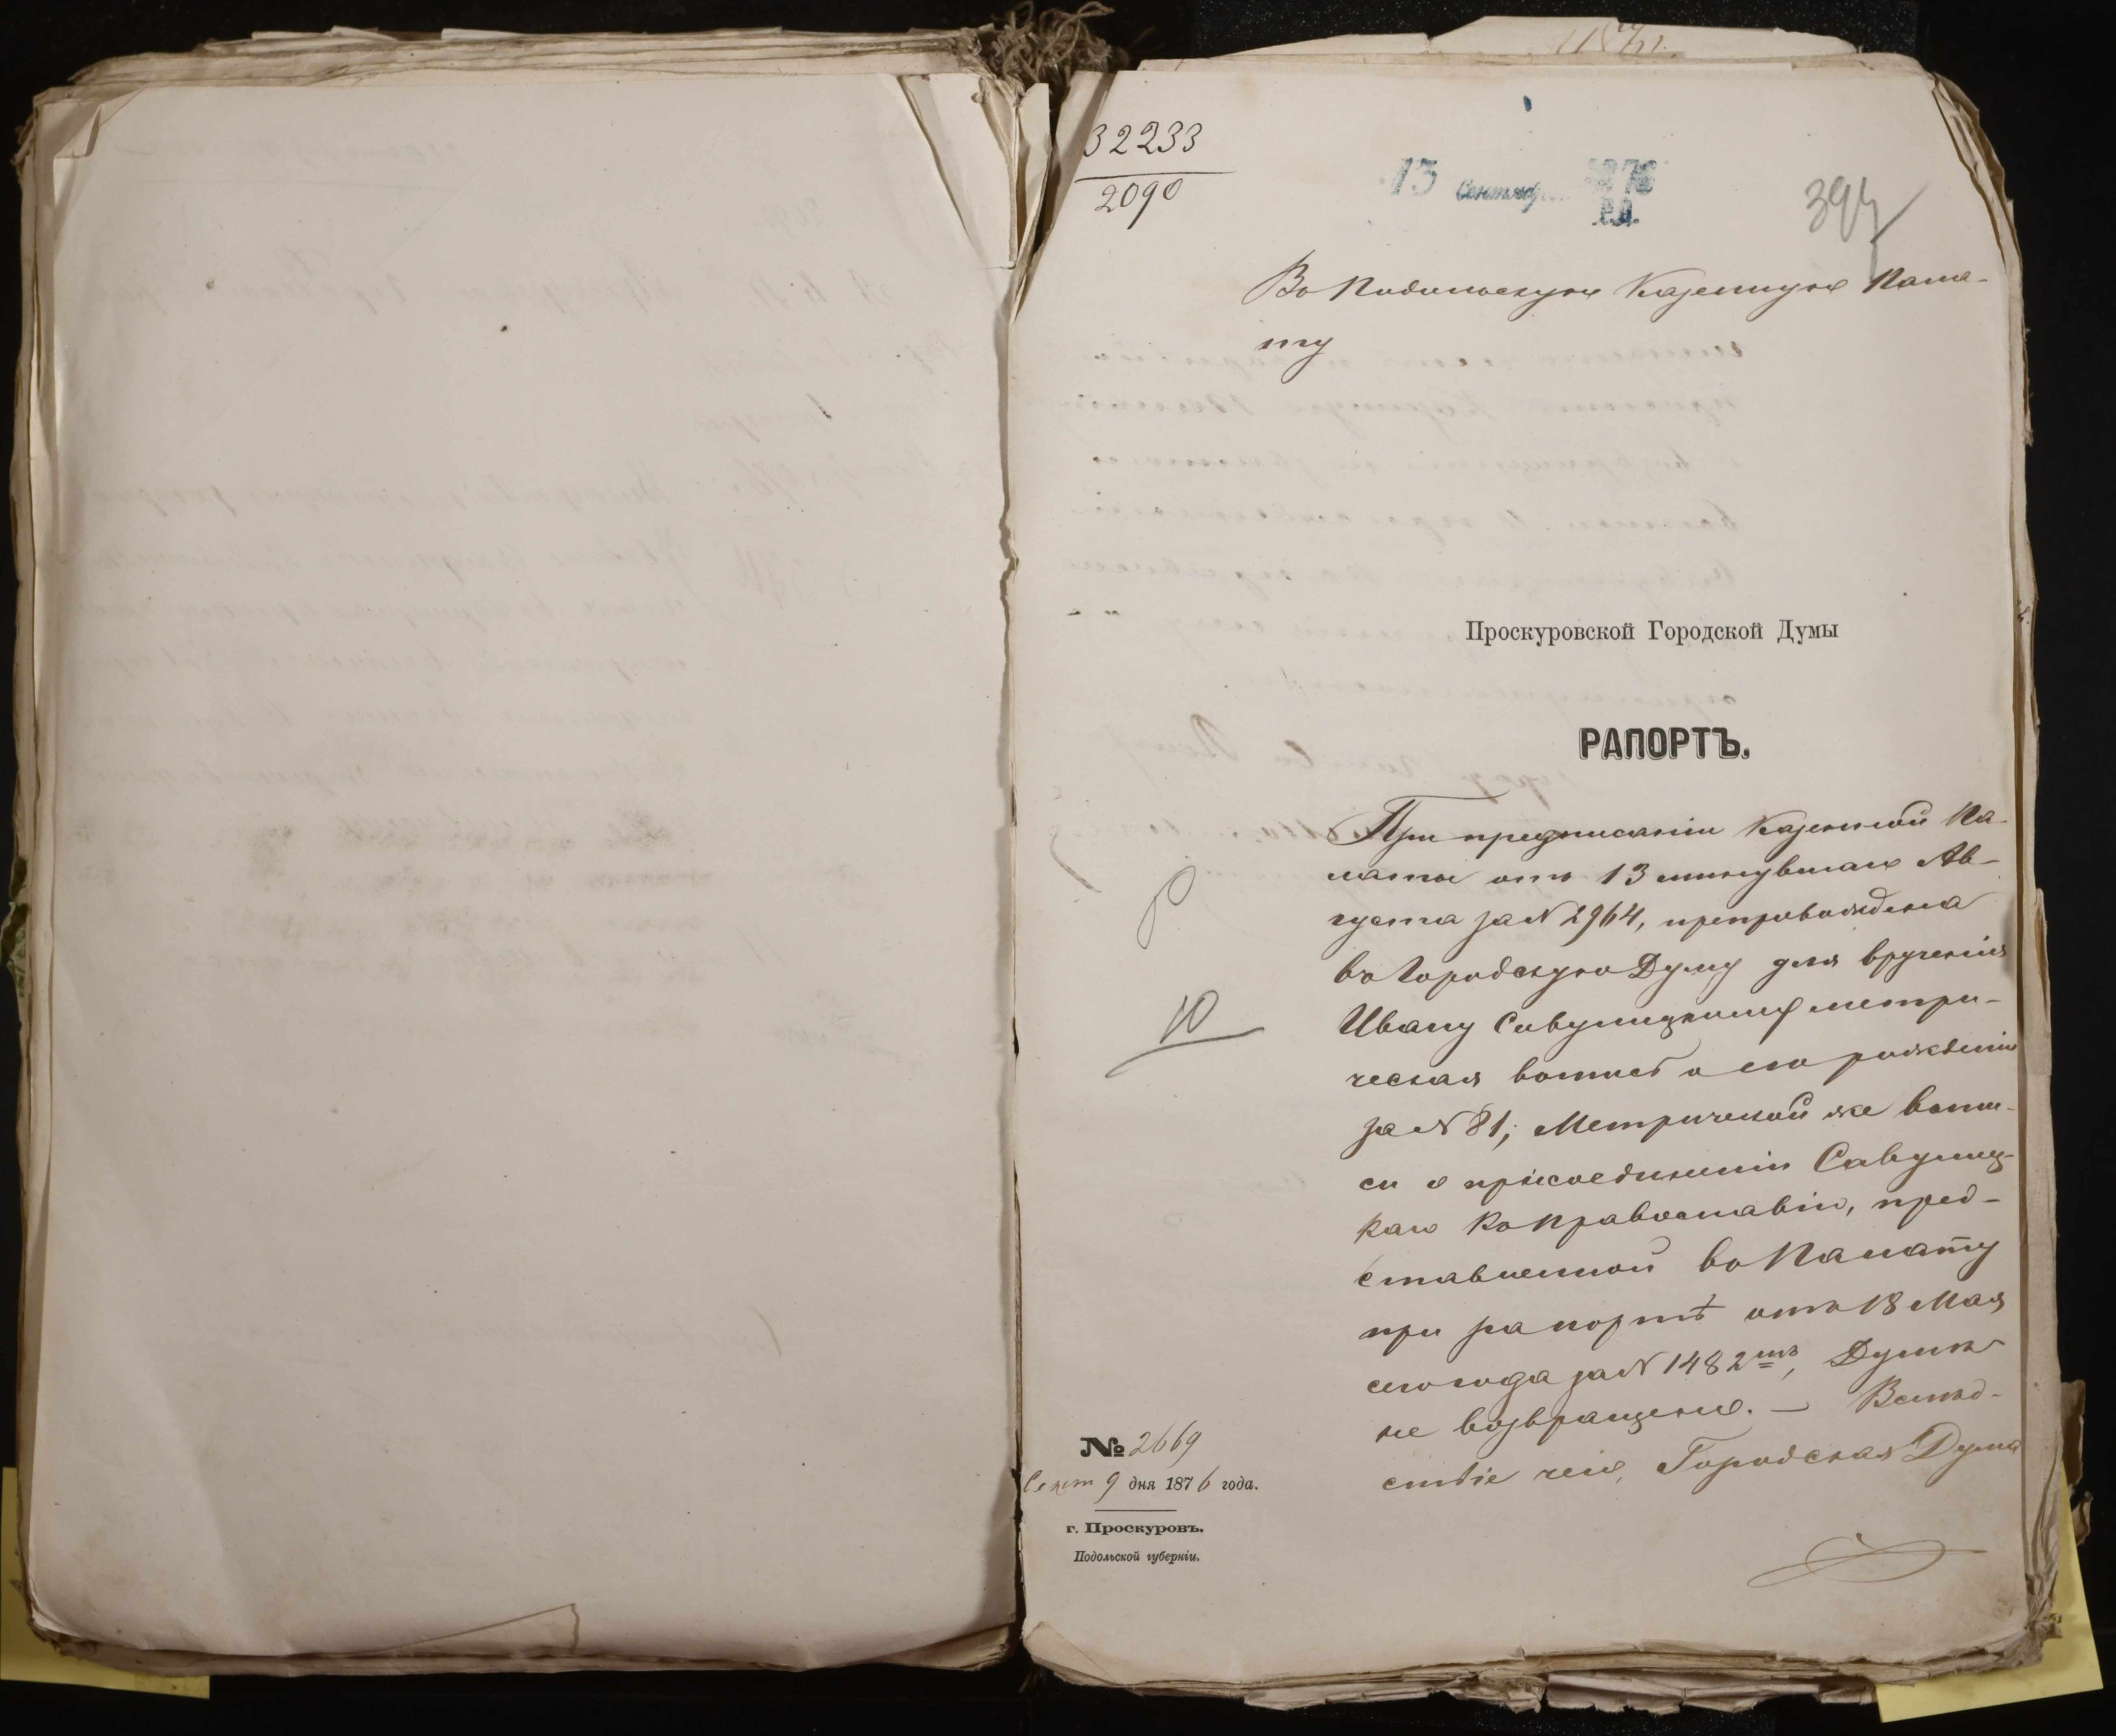 32233
2090
13 Сентяб 1876
Р.Д.
394
Въ Подольскую Казенную Пала-
ту
Проскуровской Городской Думы
РАПОРТЪ.
При предписаніи Казенной Па-
латы отъ 13 минувшаго Ав-
густа за № 2964, препровождена
въ Городскую Думу для врученія
Ивану Савулицкому метри-
ческая выпись о его рожденіи
за № 81; Метрической же выпи-
си о присоединеніи Савулиц-
каго къ православію, пред-
ставленной въ Палату
при рапортѣ отъ 18 Мая
сего года за № 1482мъ, Думѣ
не возвращено. — Вслѣд-
ствіе чего, Городская Дума
№ 2669
Сент 9 дня 1876 года.
г. Проскуровъ.
Подольской губерніи.